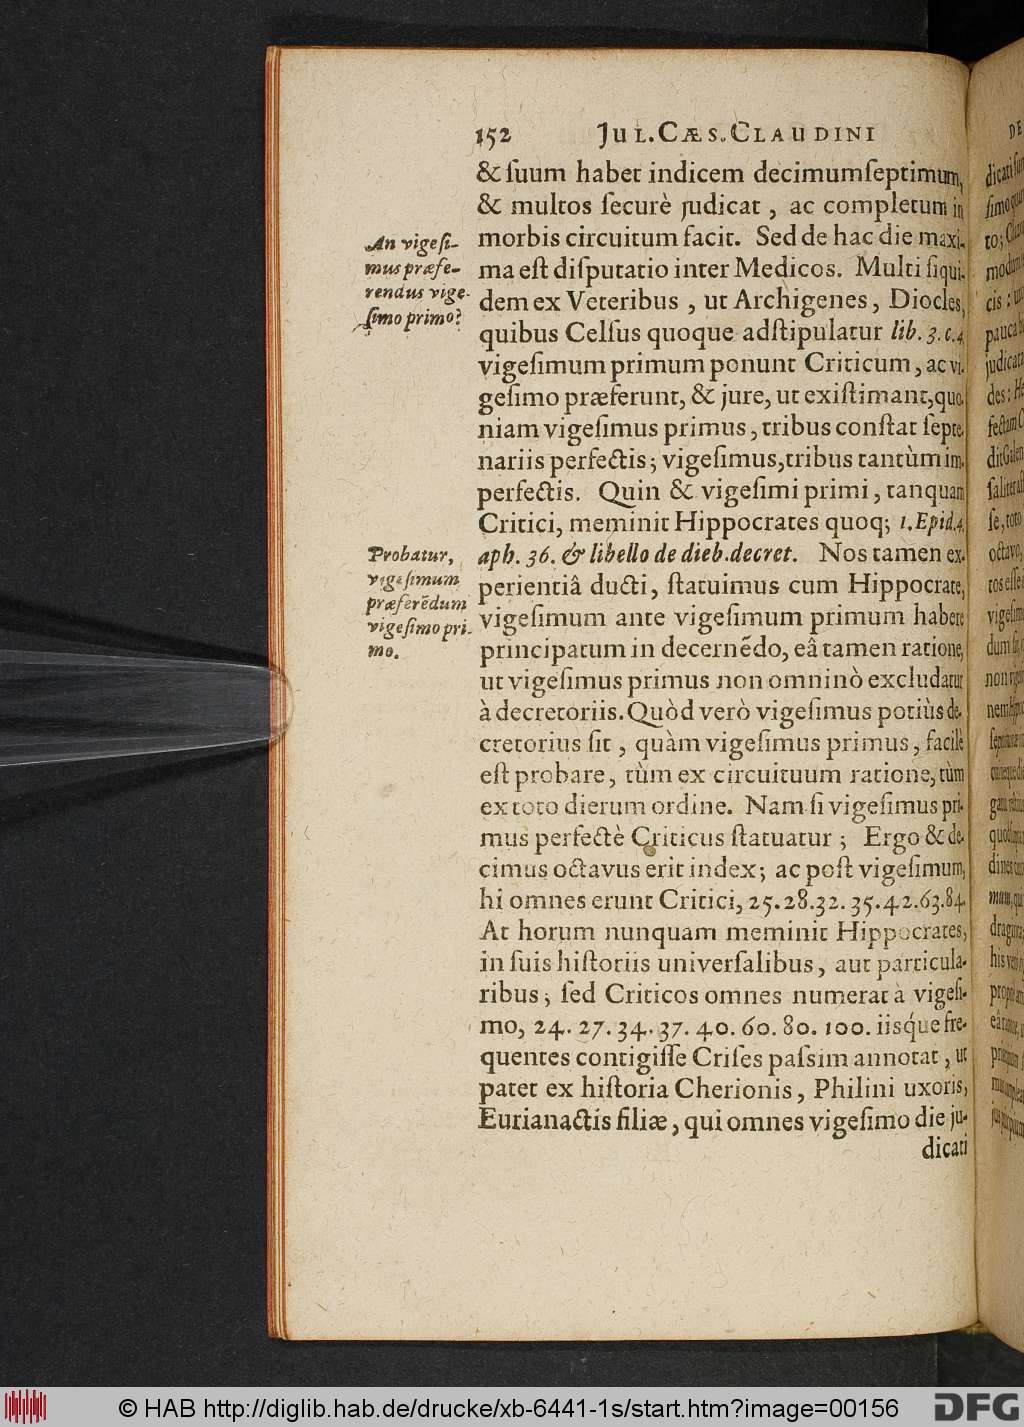 152 JUL. CÆS. CLAUDINI
& ſuum habet indicem decimumſeptimum,
& multos ſecurè judicat, ac completum in
morbis circuitum facit. Sed de hac die maxi-
ma eſt diſputatio inter Medicos. Multi ſiqui-
dem ex Veteribus, ut Archigenes, Diocles,
quibus Celſus quoque adſtipulatur lib. 3. c. 4
vigeſimum primum ponunt Criticum, ac vi-
geſimo præferunt, & jure, ut exiſtimant, quo-
niam vigeſimus primus, tribus conſtat ſepte-
nariis perfectis; vigeſimus, tribus tantùm im-
perfectis. Quin & vigeſimi primi, tanquam
Critici, meminit Hippocrates quoq; 1. Epid. 4.
aph. 36. & libello de dieb. decret. Nos tamen ex-
perientiâ ducti, ſtatuimus cum Hippocrate,
vigeſimum ante vigeſimum primum habere
principatum in decernẽdo, eâ tamen ratione,
ut vigeſimus primus non omninò excludatur
à decretoriis. Quòd verò vigeſimus potiùs de-
cretorius ſit, quàm vigeſimus primus, facilè
eſt probare, tùm ex circuituum ratione, tùm
ex toto dierum ordine. Nam ſi vigeſimus pri-
mus perfectè Criticus ſtatuatur; Ergo & de-
cimus octavus erit index; ac poſt vigeſimum,
hi omnes erunt Critici, 25. 28. 32. 35. 42. 63. 84.
At horum nunquam meminit Hippocrates,
in ſuis hiſtoriis univerſalibus, aut particula-
ribus; ſed Criticos omnes numerat à vigeſi-
mo, 24. 27. 34. 37. 40. 60. 80. 100. iisq́ue fre-
quentes contigiſſe Criſes paſsim annotat, ut
patet ex hiſtoria Cherionis, Philini uxoris,
Eurianactis filiæ, qui omnes vigeſimo die ju-
dicati
An vigeſi-
mus præfe-
rendus vige-
ſimo primo?
Probatur,
vigeſimum
præferẽdum
vigeſimo pri-
mo.
© HAB http://diglib.hab.de/drucke/xb-6441-1s/start.htm?image=00156
DFG